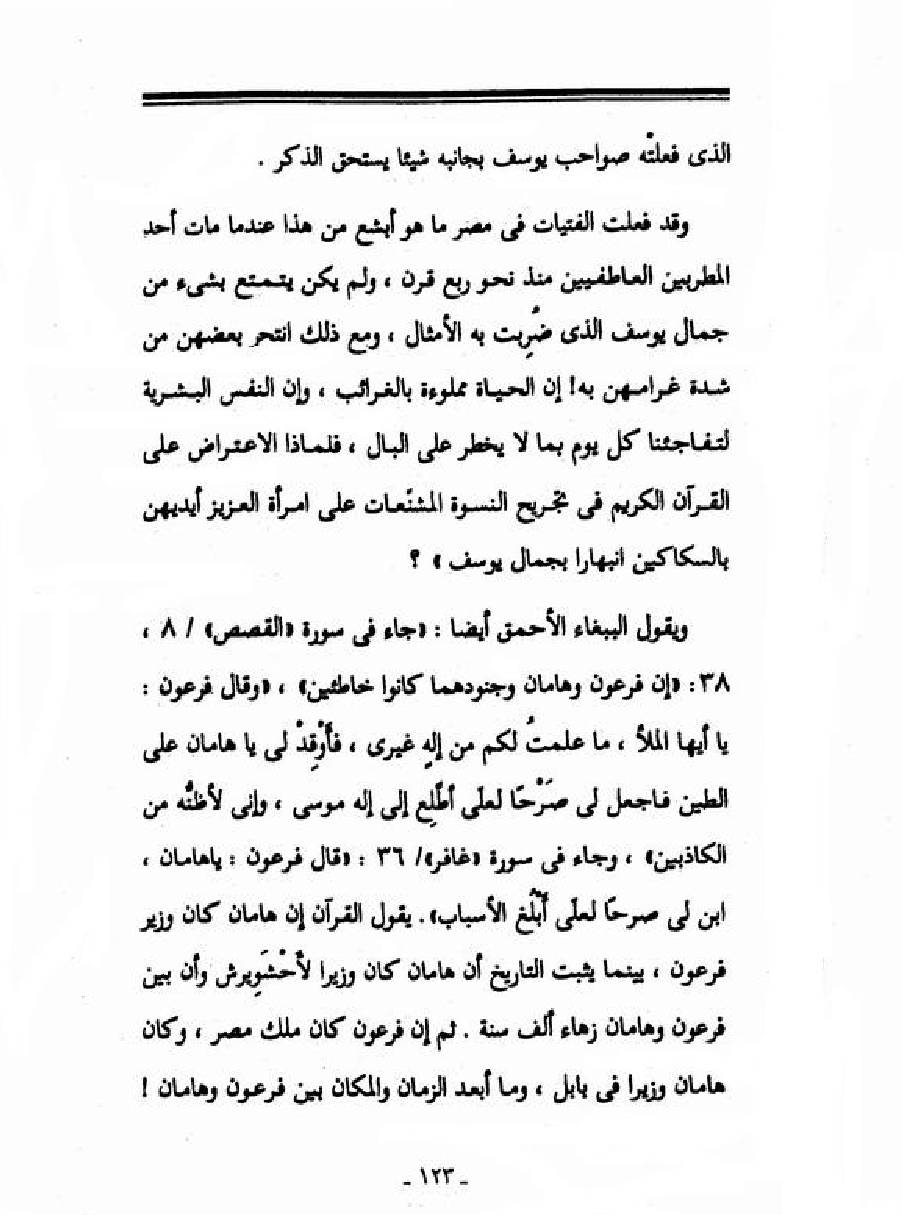 الذى فعلتْه صواحب يوسف بجانبه شيئا يستحق الذكر .
وقد فعلت الفتيات فى مصر ما هو أبشع من هذا عندما مات أحد
المطربين العاطفيين منذ نحو ربع قرن ، ولم يكن يتمتع بشىء من
جمال يوسف الذى ضُرِبت به الأمثال ، ومع ذلك انتحر بعضهن من
شدة غرامهن به! إن الحياة مملوءة بالغرائب ، وإن النفس البشرية
لتفاجئنا كل يوم بما لا يخطر على البال ، فلماذا الاعتراض على
القرآن الكريم فى تجريح النسوة المشنّعات على امرأة العزيز أيديهن
بالسكاكين انبهارا بجمال يوسف » ؟
ويقول الببغاء الأحمق أيضا : «جاء فى سورة «القصص» / ٨ ،
٣٨: «إن فرعون وهامان وجنودهما كانوا خاطئين» ، «وقال فرعون :
يا أيها الملأ ، ما علمتُ لكم من إلهٍ غيرى ، فأَوْقِدْ لى يا هامان على
الطين فاجعل لى صَرْحًا لعلّى أطّلِع إلى إله موسى ، وإنى لأظنُّه من
الكاذبين» ، وجاء فى سورة «غافر»/ ٣٦ : «قال فرعون : ياهامان ،
ابن لى صرحًا لعلّى أَبْلُغ الأسباب» . يقول القرآن إن هامان كان وزير
فرعون ، بينما يثبت التاريخ أن هامان كان وزيرا لأَحْشَوِيرش وأن بين
فرعون وهامان زهاء ألف سنة . ثم إن فرعون كان ملك مصر ، وكان
هامان وزيرا فى بابل ، وما أبعد الزمان والمكان بين فرعون وهامان !
ـ ١٢٣ ـ